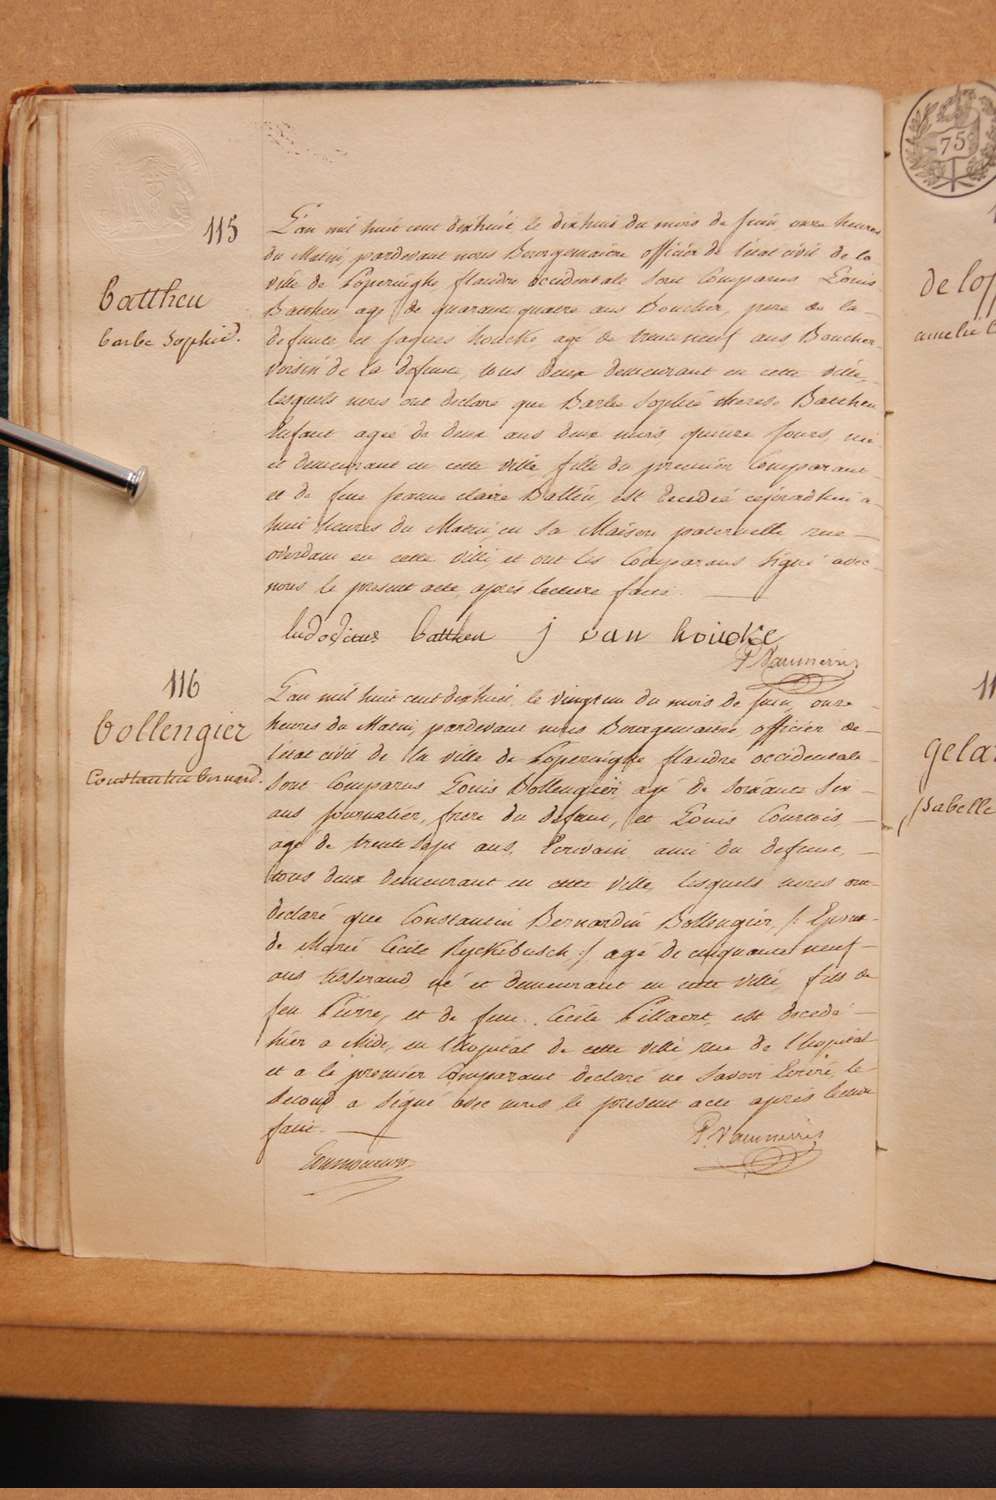 115
Battheu
barbe Sophie.
L'an mil huit cent dixhuit le dixhuit du mois de Juin, onze heures
du Matin, pardevant nous Bourgemaitre officier de l'etat civil de la
ville de Poperinghe flandre occidentale sont Comparus Louis
Battheu agé de quarante quatre ans Boucher, pere de la
defunte et Jaques houcke, agé de trente neuf ans Boucher
Voisin de la defunte, tous deux demeurant en cette ville,
lesquels nous ont declaré que Barbe Sophie therese Battheu
Enfant agée de deux ans deux mois quinze jours, née
et demeurant en cette ville, fille du premier Comparant
et de feue Jeanne claire Dallein, est decedée cejourdhui a
huit heures du Matin, en sa Maison paternelle rue
overdam en cette ville et ont les Comparans signé avec
nous le present acte, après lecture faite.
ludovicus battheu j van houcke
P Vanmerris
116
bollengier
Constantin bernard.
L'an mil huit cent dixhuit, le vingt un du mois de Juin, onze
heures du Matin, pardevant nous Bourgemaitre officier de
l'etat civil de la ville de Poperinghe flandre occidentale
sont Comparus Louis Bollengier agé de soixante six
ans journalier, frere du defunt, et Louis Courtois
agé de trente sept ans, Ecrivain ami du defunt,
tous deux demeurant en cette ville, lesquels nous ont
declaré que Constantin Bernardin Bollengier, /: Epoux
de Marie Cecile Ryckebusch :/ agé de cinquante neuf
ans tisserand né et demeurant en cette ville, fils de
feu Pierre, et de feue Cécile Pillaert, est decedé
hier a Midi, en l'hopital de cette ville rue de l'hopital
et a le premier Comparant declaré ne savoir Ecrire, le
second a signé avec nous le present acte après lecture
faite.
P. Vanmerris
75
de
amelie
gela
isabelle